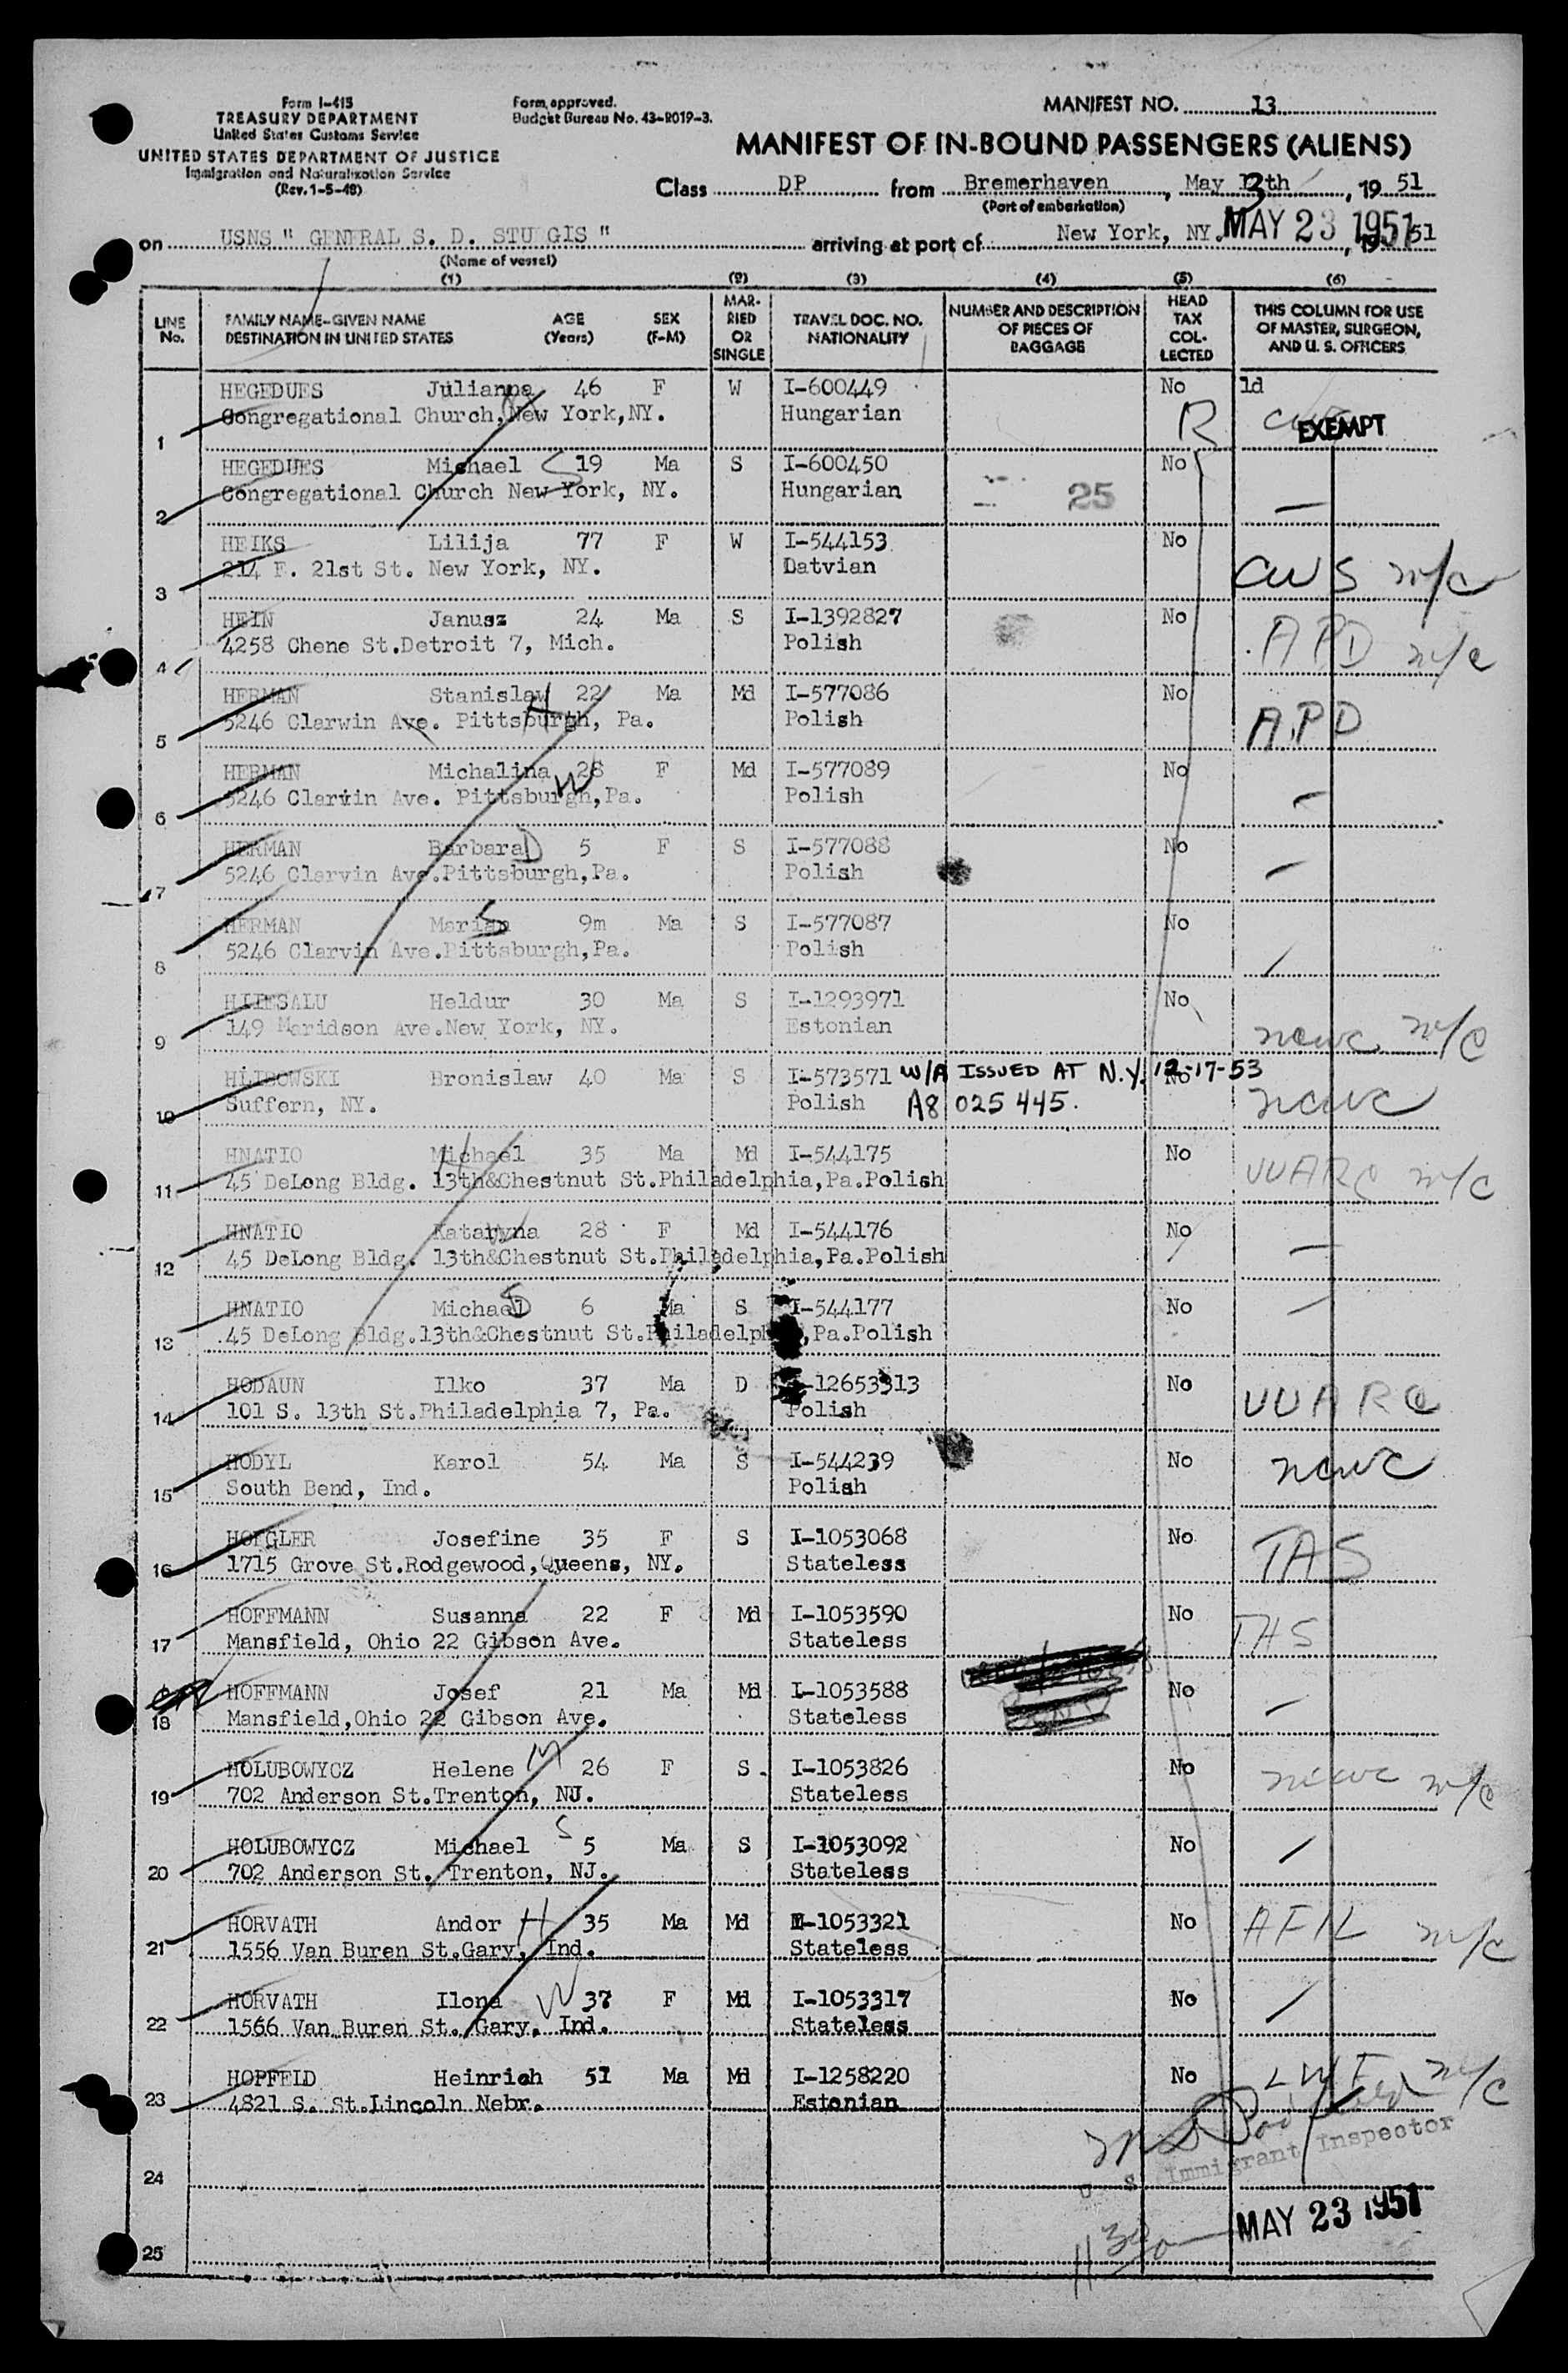 Form I-415
TREASURY DEPARTMENT
United States Customs Service
UNITED STATES DEPARTMENT OF JUSTICE
Immigration and Naturalization Service
(Rev. 1-5-48)
Form approved.
Budget Bureau No. 43-R019-3.
MANIFEST NO. 13
MANIFEST OF IN-BOUND PASSENGERS (ALIENS)
Class DP from Bremerhaven, May 13th, 19 51
(Port of embarkation)
on USNS " GENERAL S. D. STU GIS " arriving at port of New York, NY. MAY 23 1951 , 19 51
(Name of vessel)
(1) (2) (3) (4) (5) (6)
LINE No. FAMILY NAME-GIVEN NAME DESTINATION IN UNITED STATES AGE (Years) SEX (F-M) MARRIED OR SINGLE TRAVEL DOC. NO. NATIONALITY NUMBER AND DESCRIPTION OF PIECES OF BAGGAGE HEAD TAX COLLECTED THIS COLUMN FOR USE OF MASTER, SURGEON, AND U. S. OFFICERS
HEGEDUES Julianna 46 F W I-600449 No ld
1 Congregational Church, New York, NY. Hungarian R EXEMPT
HEGEDUES Michael 19 Ma S I-600450 No
2 Congregational Church New York, NY. Hungarian 25 —
HEIKS Lilija 77 F W I-544153 No
3 214 F. 21st St. New York, NY. Datvian CWS n/c
HEIN Janusz 24 Ma S I-1392827 No
4 4258 Chene St.Detroit 7, Mich. Polish APD n/c
HERMAN Stanislaw H 22 Ma Md I-577086 No
5 5246 Clarwin Ave. Pittsburgh, Pa. Polish APD
HERMAN Michalina W 28 F Md I-577089 No
6 5246 Clarvin Ave. Pittsburgh,Pa. Polish —
HERMAN Barbara D 5 F S I-577088 No
7 5246 Clarvin Ave.Pittsburgh,Pa. Polish —
HERMAN Marian S 9m Ma S I-577087 No
8 5246 Clarvin Ave.Pittsburgh,Pa. Polish
HIIESALU Heldur 30 Ma S I-1293971 No
9 149 Maridson Ave.New York, NY. Estonian ncwc n/c
HLIBOWSKI Bronislaw 40 Ma S I-573571 W/A ISSUED AT N.Y. 12-17-53 No
10 Suffern, NY. Polish A8 025 445. ncwc
HNATIO Michael H 35 Ma Md I-544175 No
11 45 DeLong Bldg. 13th&Chestnut St.Philadelphia,Pa.Polish UUARC n/c
HNATIO Kataryna W 28 F Md I-544176 No
12 45 DeLong Bldg. 13th&Chestnut St.Philadelphia,Pa.Polish —
HNATIO Michael S 6 Ma S I-544177 No
13 45 DeLong Bldg.13th&Chestnut St.Philadelphia,Pa.Polish —
HODAUN Ilko 37 Ma D I-12653313 No
14 101 S. 13th St.Philadelphia 7, Pa. Polish UUARC
HODYL Karol 54 Ma S I-544239 No
15 South Bend, Ind. Polish ncwc
HOEGLER Josefine 35 F S I-1053068 No
16 1715 Grove St.Rodgewood,Queens, NY. Stateless TAS
HOFFMANN Susanna 22 F Md I-1053590 No
17 Mansfield, Ohio 22 Gibson Ave. Stateless TAS
HOFFMANN Josef 21 Ma Md I-1053588 No
18 Mansfield,Ohio 22 Gibson Ave. Stateless —
HOLUBOWYCZ Helene M 26 F S. I-1053826 No
19 702 Anderson St.Trenton, NJ. Stateless ncwc n/c
HOLUBOWYCZ Michael S 5 Ma S I-1053092 No
20 702 Anderson St. Trenton, NJ. Stateless
HORVATH Andor H 35 Ma Md I-1053321 No
21 1556 Van Buren St.Gary, Ind. Stateless AFIL n/c
HORVATH Ilona W 37 F Md I-1053317 No
22 1566 Van Buren St. Gary, Ind. Stateless
HOPFELD Heinrich 51 Ma Md I-1258220 No
23 4821 S. St.Lincoln Nebr. Estonian LWF n/c
U S Immigrant Inspector
24
MAY 23 1951
1130a
25